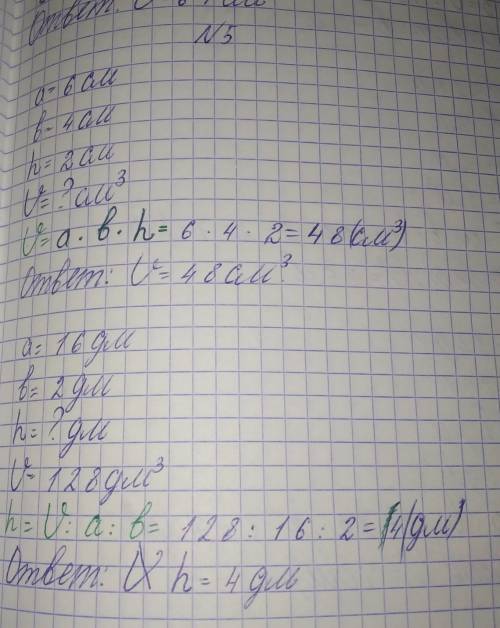 Ответ: V
N5
a = 6 см
в = 4 см
h = 2 см
V = ? см³
V = a · в · h = 6 · 4 · 2 = 48 (см³)
Ответ: V = 48 см³.
a = 16 дм
в = 2 дм
h = ? дм
V = 128 дм³
h = V : a : в = 128 : 16 : 2 = 4 (дм)
Ответ: h = 4 дм